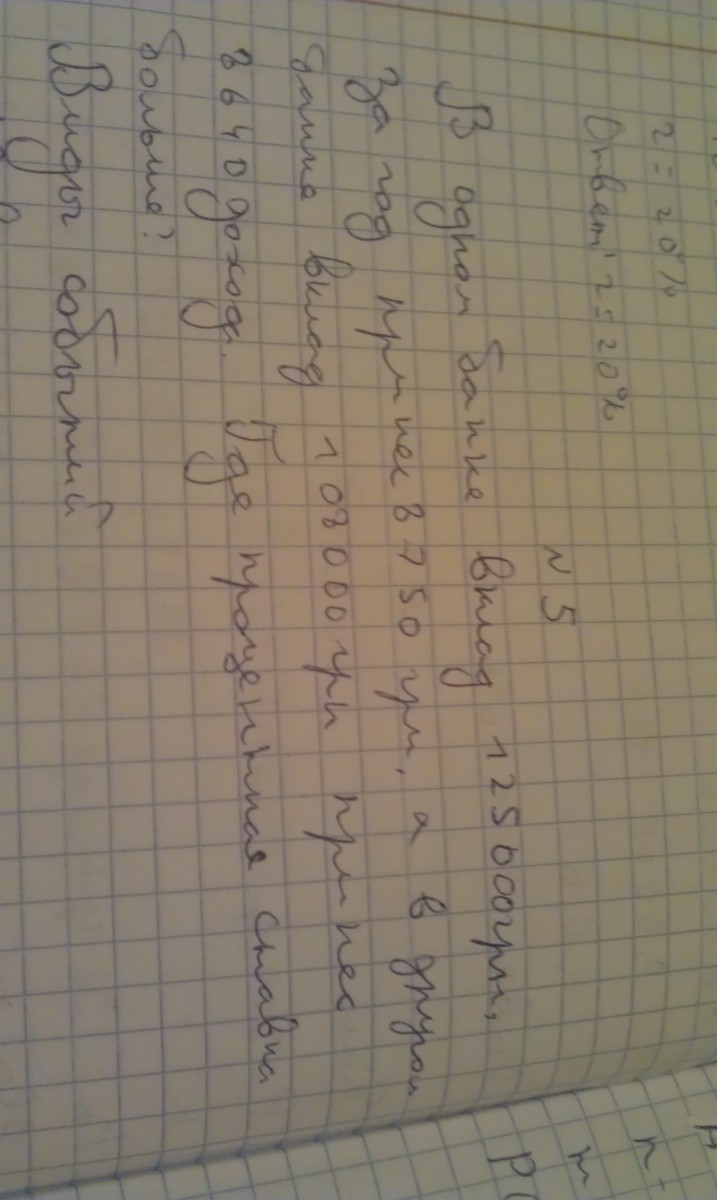 r = 20%
Ответ: r = 20%
N5
В одном банке вклад 125000грн,
За год принес 8750 грн, а в другом
банке вклад 108000грн принес
8640 дохода. Где процентная ставка
больше?
Виды событий